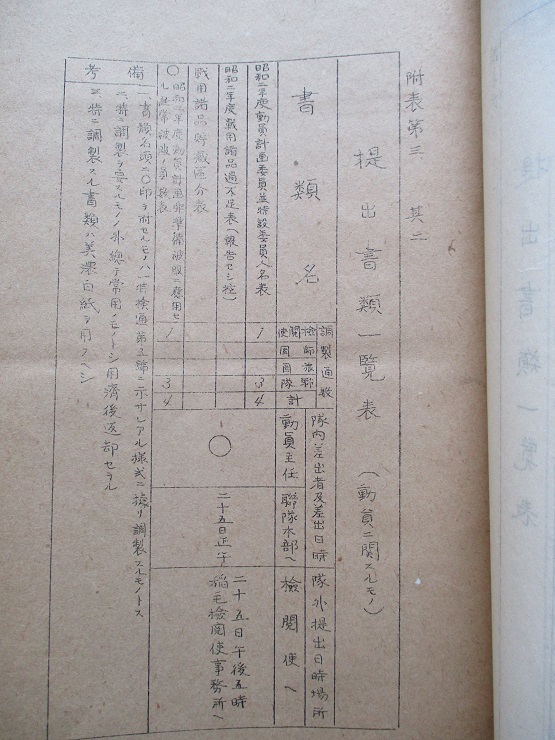 附表第三 其二
提出書類一覧表(動員ニ関スルモノ)
書類名
調製通数
検閲使
師団
旅団
聯隊
計
隊内差出者及差出日時
動員主任
聯隊本部へ
隊外提出日時場所
検閲使へ
昭和二年度動員計画委員並特設委員人名表
1
3
4
昭和二年度戦用諸品過不足表(報告セシ控)
戦用諸品貯蔵区分表
〇昭和二年度動員計画
1
3
4
〇
二十五日正午
二十五日午後五時
稲毛検閲使事務所へ
備考
一、書類名頭ニ〇印ヲ附セルモノハ特検通第五号ニ示サレアル様式ニ据リ調製スルモノトス
二、特ニ調製ヲ要スルモノノ外総テ常用ノモノトシ用済後返却セラル
三、特ニ調製スル書類ハ美濃白紙ヲ用フヘシ